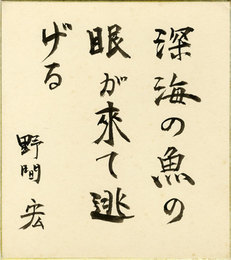 深海の魚の
眼が來て逃
げる
野間宏